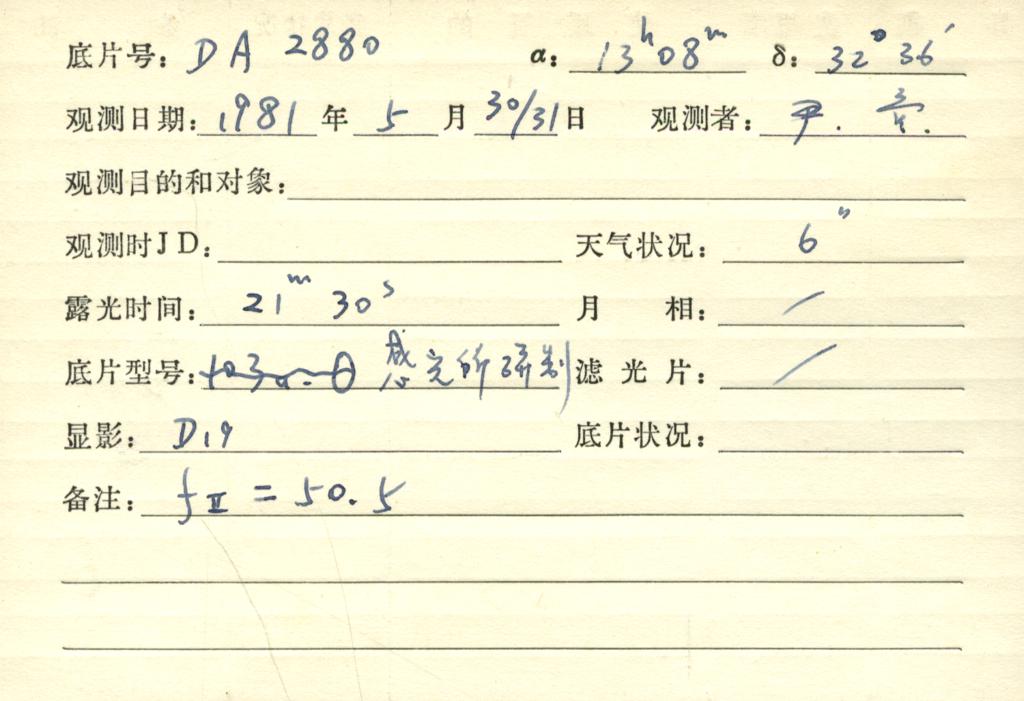 底片号: DA 2880 α: 13ʰ08ᵐ δ: 32° 36′
观测日期: 1981 年 5 月 30/31 日 观测者: 尹.
观测目的和对象:
观测时JD: 天气状况: 6″
露光时间: 21ᵐ 30ˢ 月 相: /
底片型号: 感光所研制 滤光片: /
显影: D19 底片状况:
备注: fⅡ = 50.5